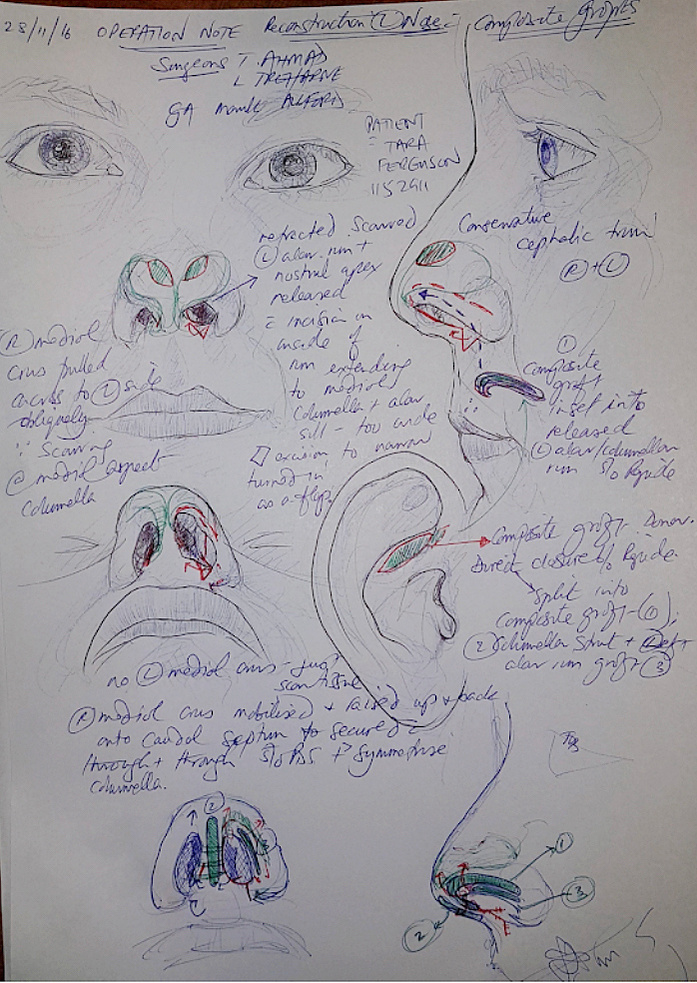 28/11/16 OPERATION NOTE Reconstruction (L) Nose: Composite Grafts
Surgeons T. AHMAD
L TREHARNE
GA
PATIENT
= TARA
FERGUSON
1152911
retracted scarred
(L) alar rim +
nostral apex
released
= incision on
inside of
rim extending
to medial
columella + alar
sill - too wide
excision to narrow
turned in
as a flip
Conservative
cephalic trim
(R) + (L)
(R) medial
crus pulled
across to (L) side
obliquely
∵ scarring
@ medial aspect
columella
(1)
Composite
graft
inset into
released
(L) alar/columellar
rim 5/0 Rapide
Composite graft - Donor.
Direct closure 5/0 Rapide
split into
composite graft - (1);
(2) Columellar Strut + Left
alar rim graft (3)
no (L) medial crus - just
scar tissue
(R) medial crus mobilised + raised up + back
onto caudal septum + secured =
through + through 5/0 PDS + symmetrise
columella.
2
1
3
2